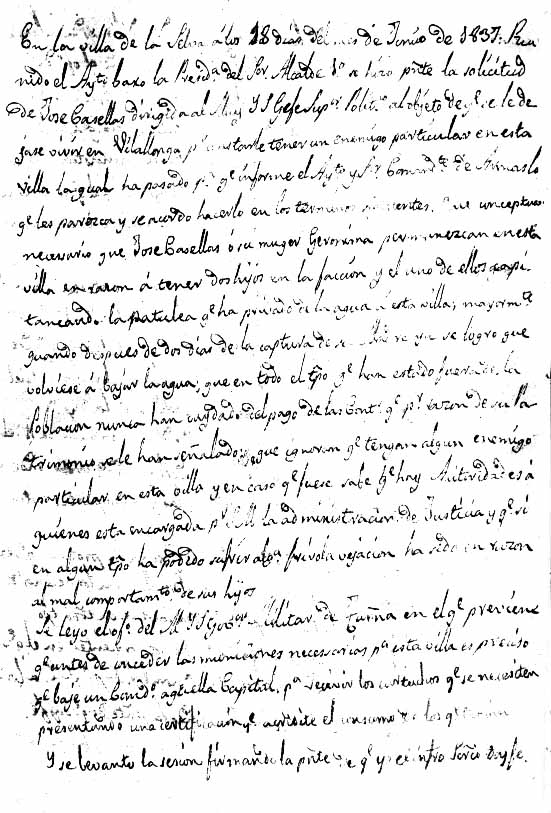 En la villa de la Selva á los 18 dias del mes de Junio de 1837: Reu
nido el Ayto baxo la Presida del Sor Alcalde 1o se hizo pnte la solicitud
de Jose Casellas dirigida al Muy Y S Gefe Supor Politco al objeto de qe se le de
jase vivir en Vilallonga pr constarle tener un enemigo particular en esta
villa la qual ha pasado pa qe informe el Ayto y Sor Comandte de Armas lo
qe les parezca y se acordo hacerlo en los terminos siguientes. Que conceptuan
necesario que Jose Casellas ó su muger Geronima permanezcan en esta
villa en razon á tener dos hijos en la facción y el uno de ellos capi
taneando la patulea qe ha privado de la agua á esta villa; mayormte
quando despues de dos dias de la captura de su Madre ya se logro que
volviese á bajar la agua; que en todo el tpo qe han estado fuera de la
Poblacion nunca han cuydado del pago de las Conts qe pr razon de su Pa
trimonio se le han señalado; que ignoran qe tengan algun enemigo
particular en esta villa y en caso qe fuese sabe qe hay Autoridades á
quienes esta encargada pr S.M. la administracion de Justicia y qe si
en algun tpo ha podido sufrir alga frivola vejacion ha sido en razon
al mal comportamto de sus hijos
Se leyo el ofo del M. Y S Gobor Militar de Tarrna en el qe previene
qe antes de conceder las municiones necesarias pa esta villa es preciso
qe baje un Comdo a aquella Capital pa recivir los cartuchos qe se necesiten
presentando una certificacion qe acredite el consumo de los qe
Y se levanto la sesion firmando la pnte de qe yo el infro Srio doy fe.